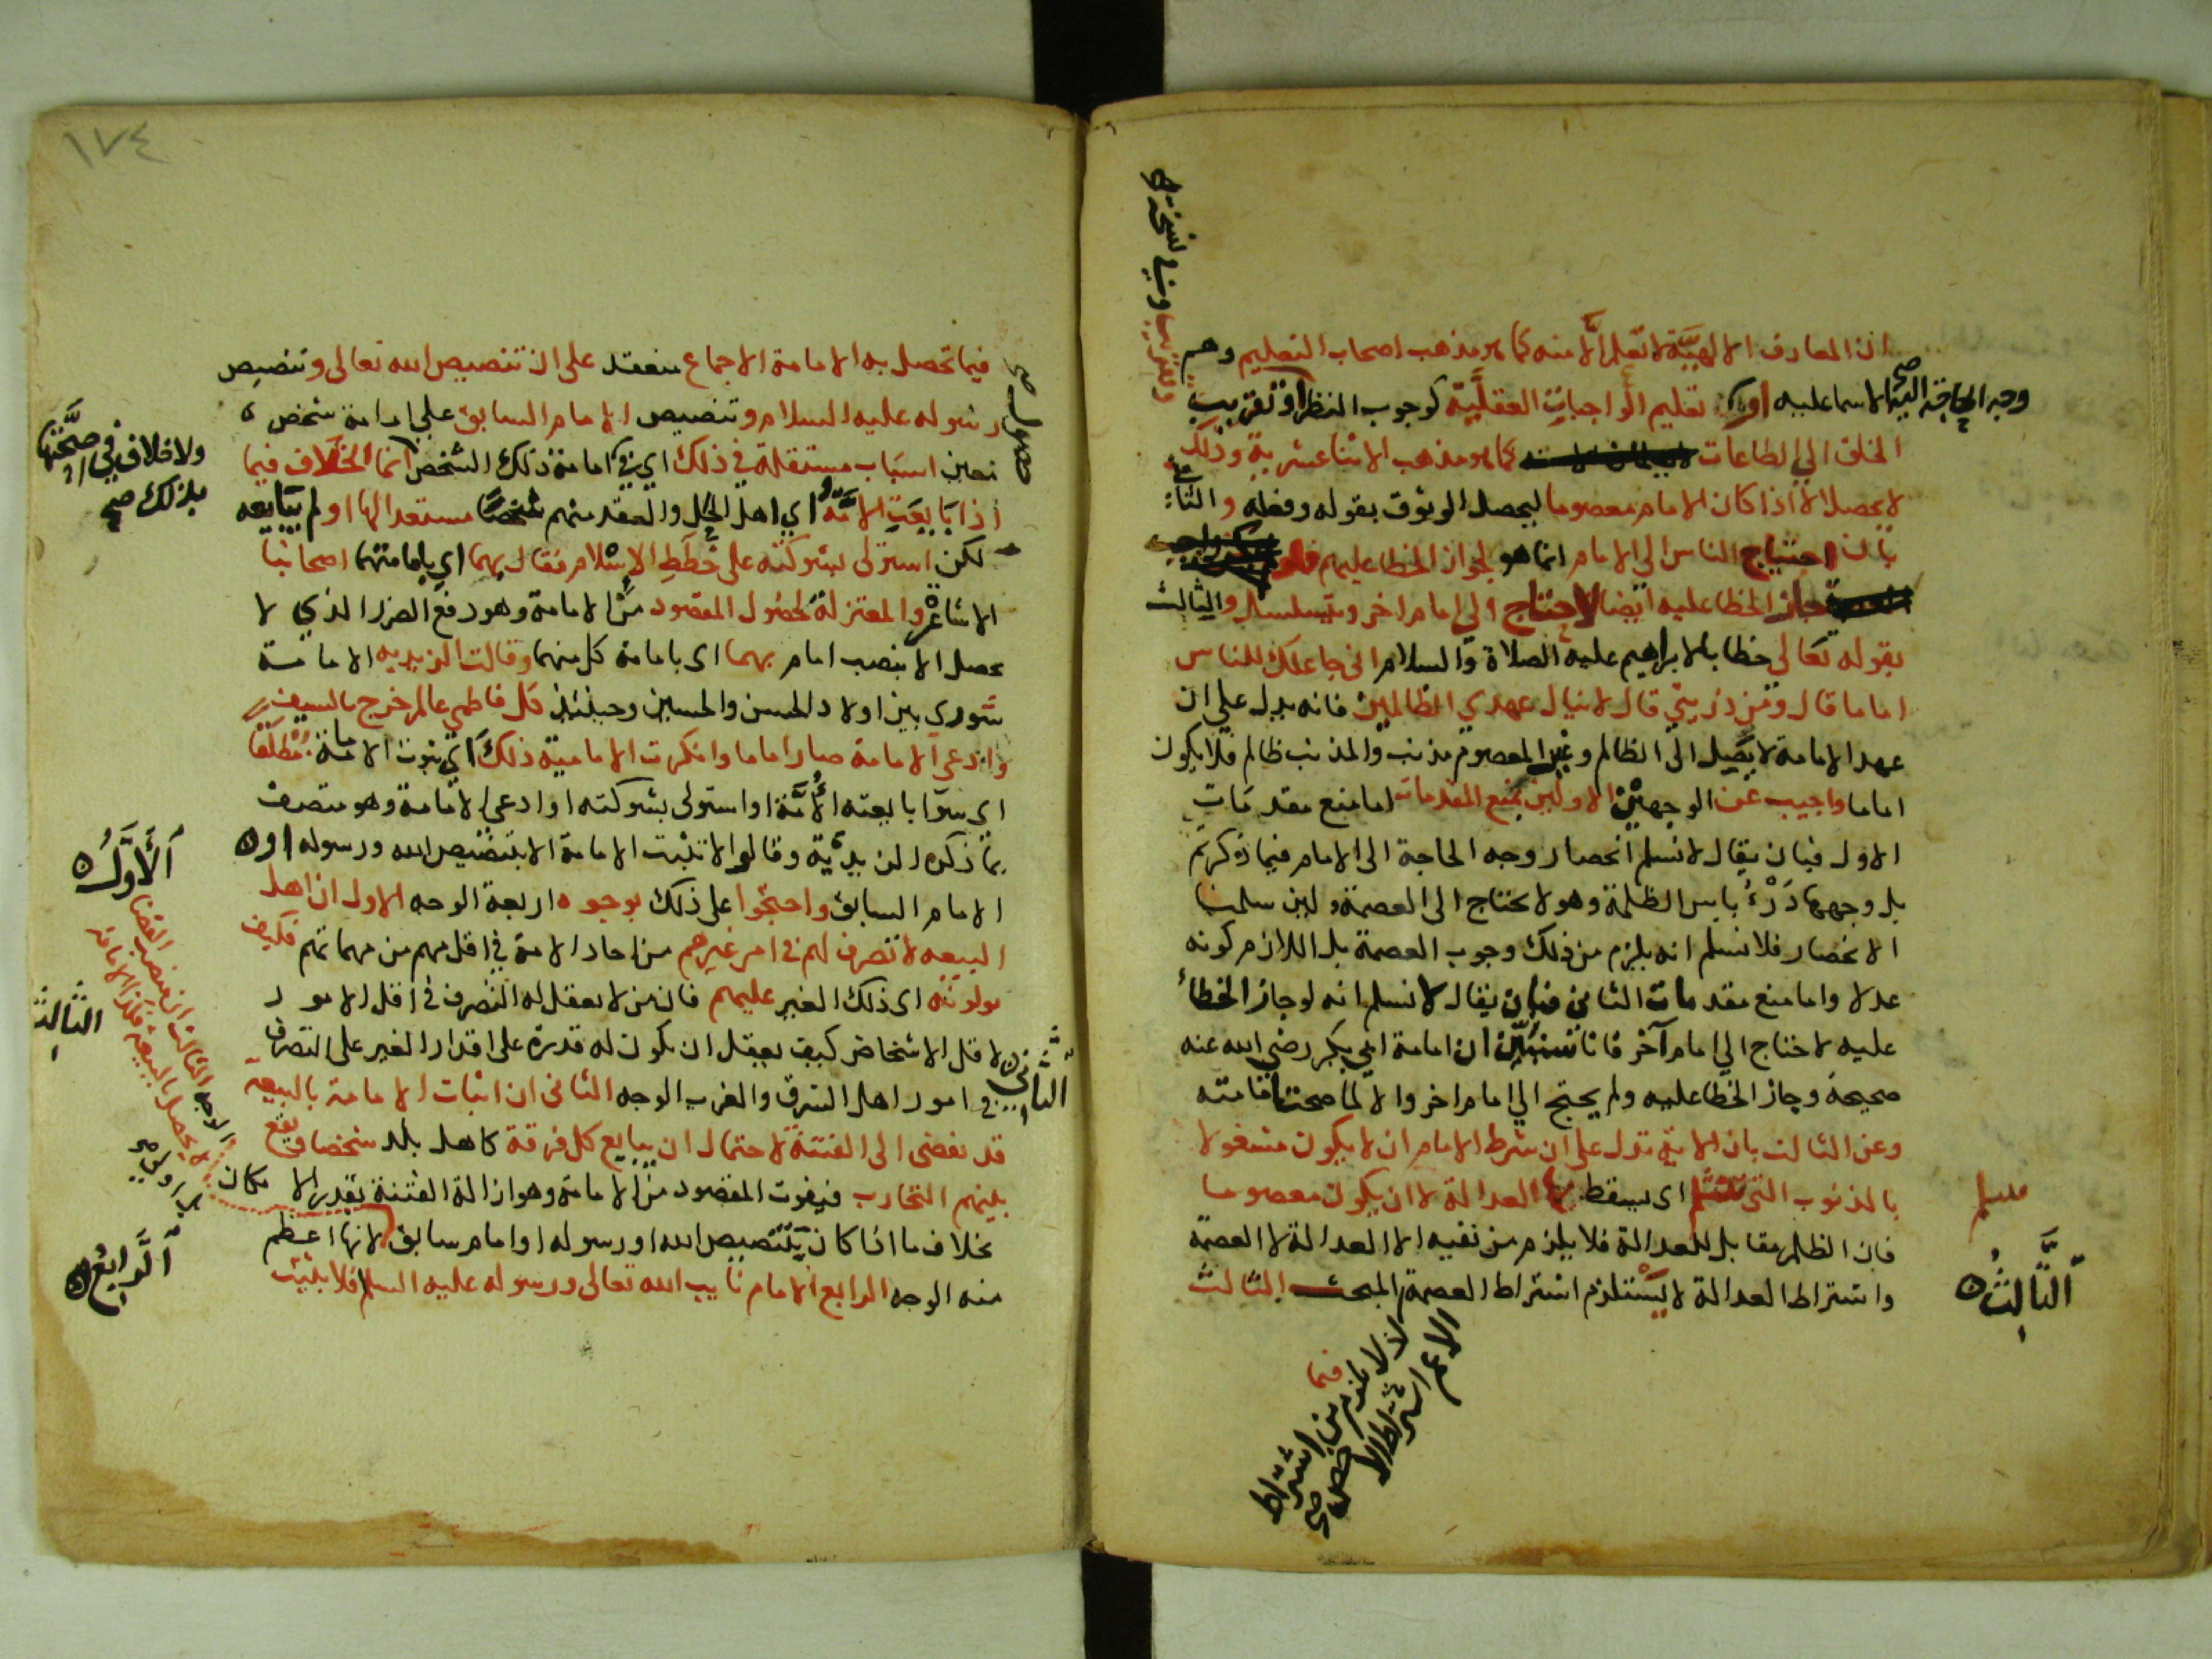 ان المعارف الالهية لا تعلم الا منه كما هو مذهب اصحاب التعليم وهم
الاسماعيلية او تعليم الواجبات العقلية كوجوب النظر او تقريب
وجه الحاجة اليه صح
وفي نسخة
وتقريب
الخلق الى الطاعات كما هو مذهب الاثناعشرية وذلك
لا يحصل الا اذا كان الامام معصوما ليحصل الوثوق بقوله وفعله والثاني
بان احتياج الناس الى الامام انما هو لجواز الخطا عليهم فلو
جاز الخطا عليه ايضا لاحتاج الى امام اخر ويتسلسل والثالث
بقوله تعالى خطابا لابراهيم عليه الصلاة والسلام اني جاعلك للناس
اماما قال ومن ذريتي قال لا ينال عهدي الظالمين فانه يدل على ان
عهد الامامة لا يصل الى الظالم وغير المعصوم مذنب والمذنب ظالم فلا يكون
اماما واجيب عن الوجهين الاولين بمنع المقدمات اما منع مقدمات
الاول فبان يقال لا نسلم انحصار وجه الحاجة الى الامام فيما ذكرتم
بل وجهها درء باس الظلمة وهو لا يحتاج الى العصمة ولين سلمنا
الانحصار فلا نسلم انه يلزم من ذلك وجوب العصمة بل اللازم كونه
عدلا واما منع مقدمات الثاني فبان يقال لا نسلم انه لو جاز الخطأ
عليه لاحتاج الى امام آخر فانا سنبين ان امامة ابي بكر رضي الله عنه
صحيحة وجاز الخطا عليه ولم يحتج الى امام اخر والا لما صحت امامته
وعن الثالث بان الاية تدل على ان شرط الامام ان لا يكون مشغولا
بالذنوب التي تنثلم اى يسقط بها العدالة لا ان يكون معصوما
فان الظلم مقابل للعدالة فلا يلزم من نفيه الا العدالة لا العصمة
واشتراط العدالة لا يستلزم اشتراط العصمة المبحث الثالث
الثالث
اذ لا يلزم من اشتراط
الاعم اشتراط الاخص صح
فيما
١٧٤
فيما تحصل به الامامة الاجماع منعقد على ان تنصيص الله تعالى وتنصيص
رسوله عليه السلام وتنصيص الامام السابق على امامة شخص
حصول صح
معين اسباب مستقلة في ذلك اي في امامة ذلك الشخص انما الخلاف فيما
ولا خلاف في صحتها
بذلك صح
اذا بايعت الامة اي اهل الحل والعقد منهم شخصا مستعدا لها او لم يبايعه
لكن استولى بشوكته على خطط الاسلام فقال بهما اي بامامتهما اصحابنا
الاشاعرة والمعتزلة لحصول المقصود من الامامة وهو دفع الضرر الذي لا
يحصل الا بنصب امام بهما اى بامامة كل منهما وقالت الزيدية الامامة
شورى بين اولاد الحسن والحسين وحينئذ كل فاطمي عالم خرج بالسيف
وادعى الامامة صار اماما وانكرت الامامية ذلك اي ثبوت الامامة مطلقا
اى سوا بايعته الأمة او استولى بشوكته او ادعى الامامة وهو متصف
بما ذكره الزيدية وقالوا لا تثبت الامامة الا بتنصيص الله ورسوله او
الامام السابق واحتجوا على ذلك بوجوه اربعة الوجه الاول ان اهل
الأول
البيعه لا تصرف لهم في امر غيرهم من احاد الامة في اقل مهم من مهماتهم فكيف
يولونه اى ذلك الغير عليهم فان من لا يعقل له التصرف في اقل الامور
لاقل الاشخاص كيف يعقل ان يكون له قدرة على اقدار الغير على التصرف
في امور اهل الشرق والغرب الوجه الثاني ان اثبات الامامة بالبيعة
الثاني
قد يفضى الى الفتنة لاحتمال ان يبايع كل فرقة كاهل بلد شخصا ويقع
بينهم التحارب فيفوت المقصود من الامامة وهو ازالة الفتنة بقدر الامكان
بخلاف ما اذا كان بتنصيص الله او رسوله او امام سابق لانها اعظم
منه الوجه الرابع الامام نايب الله تعالى ورسوله عليه السلام فلا يثبت
الثالث
الوجه الثالث ان منصب القضا
لا يحصل بالبيعة فكذا الامامة
بل اولى صح
الرابع